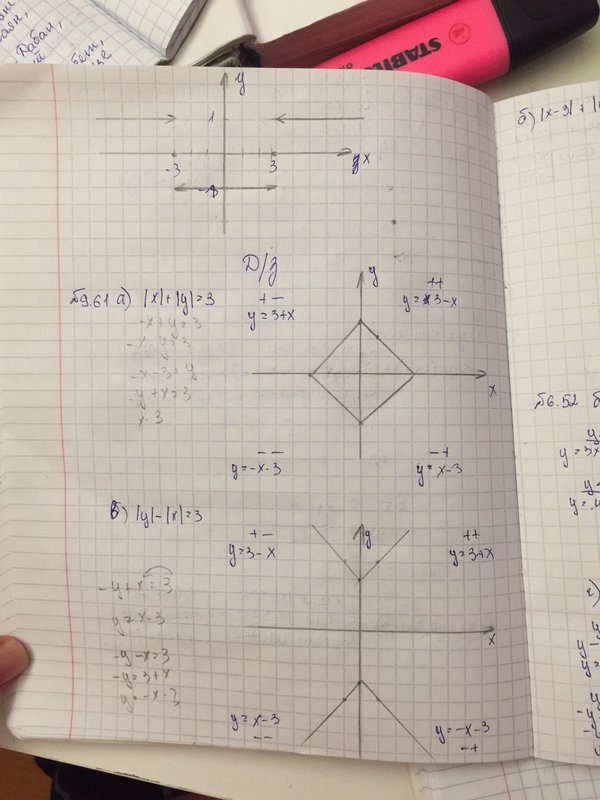 Дабан,
STABILO
y
1
-3
3
x
-1
б) |x-3| +
Д/з
№9.61 а) |x|+|y|=3
+ -
y=3+x
y
++
y=3-x
-x+y=3
-x-y=3
-x-3=y
-y+x=3
x-3
x
- -
y=-x-3
- +
y=x-3
№6.52 б
y
y=3x
y=
в) |y|-|x|=3
+ -
y=3-x
y
++
y=3+x
-y+x=3
y=x-3
-y-x=3
-y=3+x
y=-x-3
x
y=x-3
- -
y=-x-3
- +
г)